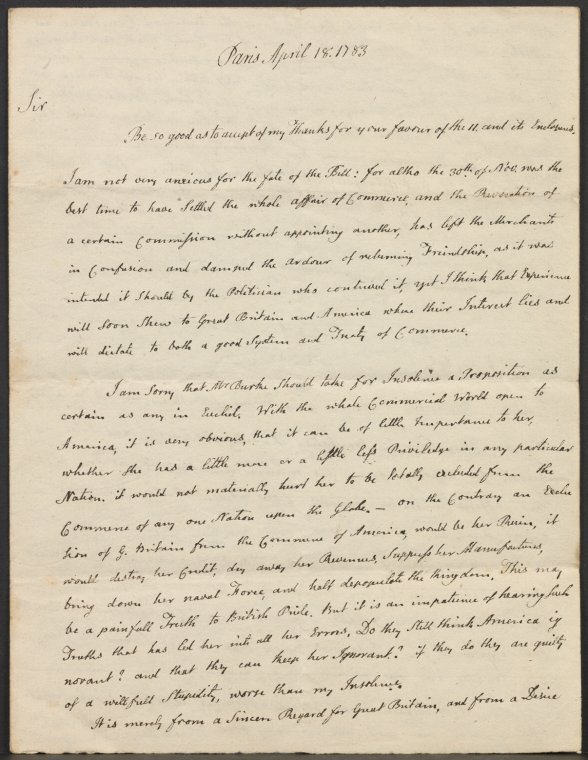 Paris April 18. 1783
Sir
Be so good as to accept of my Thanks for your favour of the 11. and its Enclosures.
I am not very anxious for the fate of the Bill: for altho the 30th of Nov. was the
best time to have Settled the whole affair of Commerce, and the Revocation of
a certain Commission without appointing another, has left the Merchants
in Confusion and damped the ardour of returning Friendship, as it was
intended it should by the Politician who contrived it, yet I think that Experience
will soon shew to Great Britain and America where their Interest lies and
will dictate to both a good System and Treaty of Commerce.
I am Sorry that Mr Burke should take for Insolence a Proposition as
certain as any in Euclid. With the whole Commercial World open to
America, it is very obvious, that it can be of little Importance to her,
whether she has a little more or a little less Priviledge in any particular
Nation. it would not materially hurt her to be totally excluded from the
Commerce of any one Nation upon the Globe.— on the Contrary an Exclu
sion of G. Britain from the Commerce of America, would be her Ruin, it
would destroy her Credit, dry away her Revenues, Suppress her Manufactures,
bring down her naval Force, and half depopulate the Kingdom. This may
be a painfull Truth to British Pride. But it is an impatience of hearing such
Truths that has led her into all her Errors. Do they still think America ig
norant? and that they can keep her Ignorant? if they do they are guilty
of a willfull Stupidity, worse than my Insolence.
It is merely from a Sincere Regard for Great Britain, and from a Desire